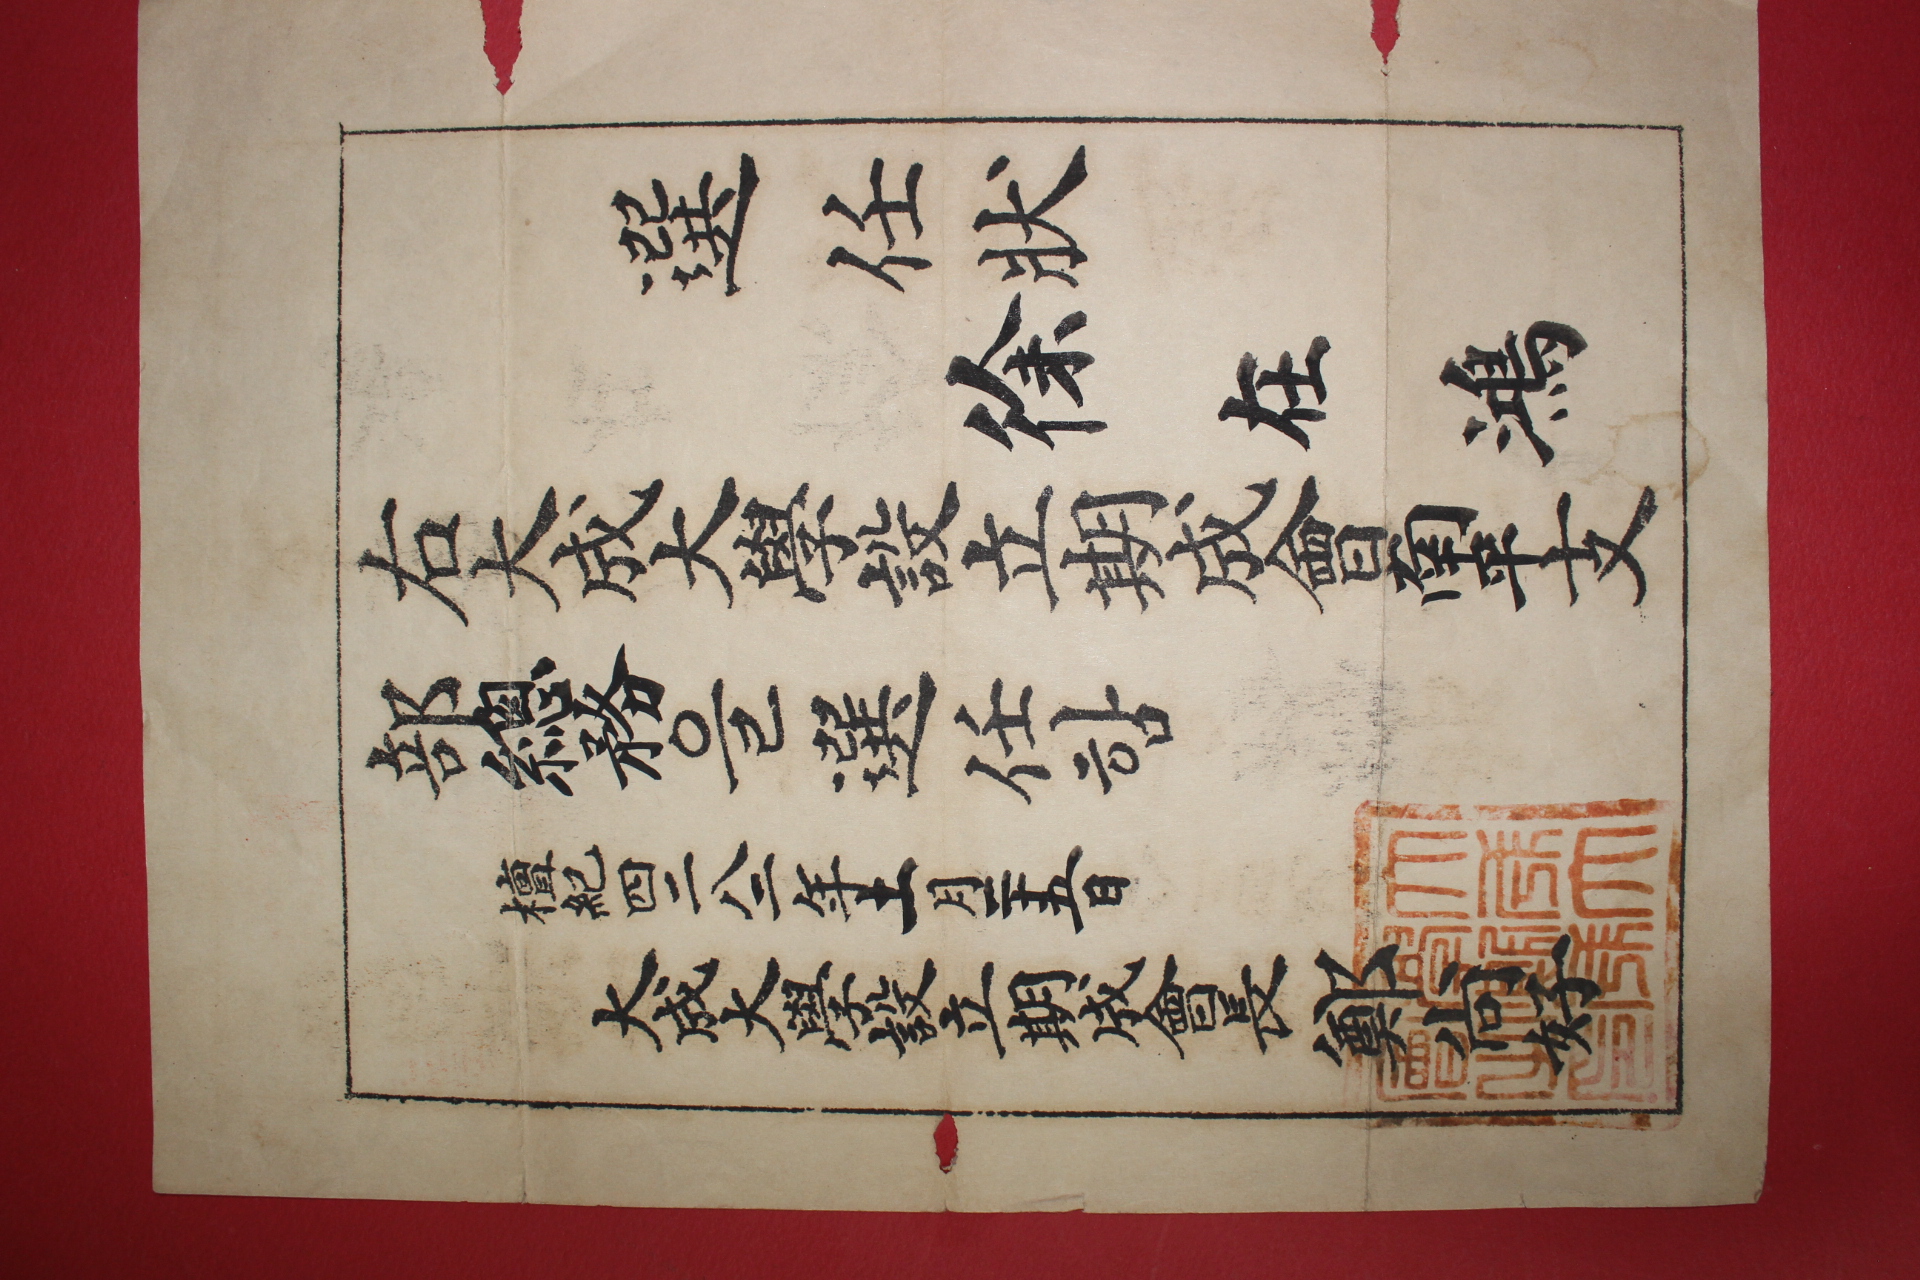 選任狀
徐在鴻
右大成大學設立期成會南平支
部總務을選任함
檀紀四二八二年十一月二十五日
大成大學設立期成會長鄭尚好
大成大
學期成
會之印